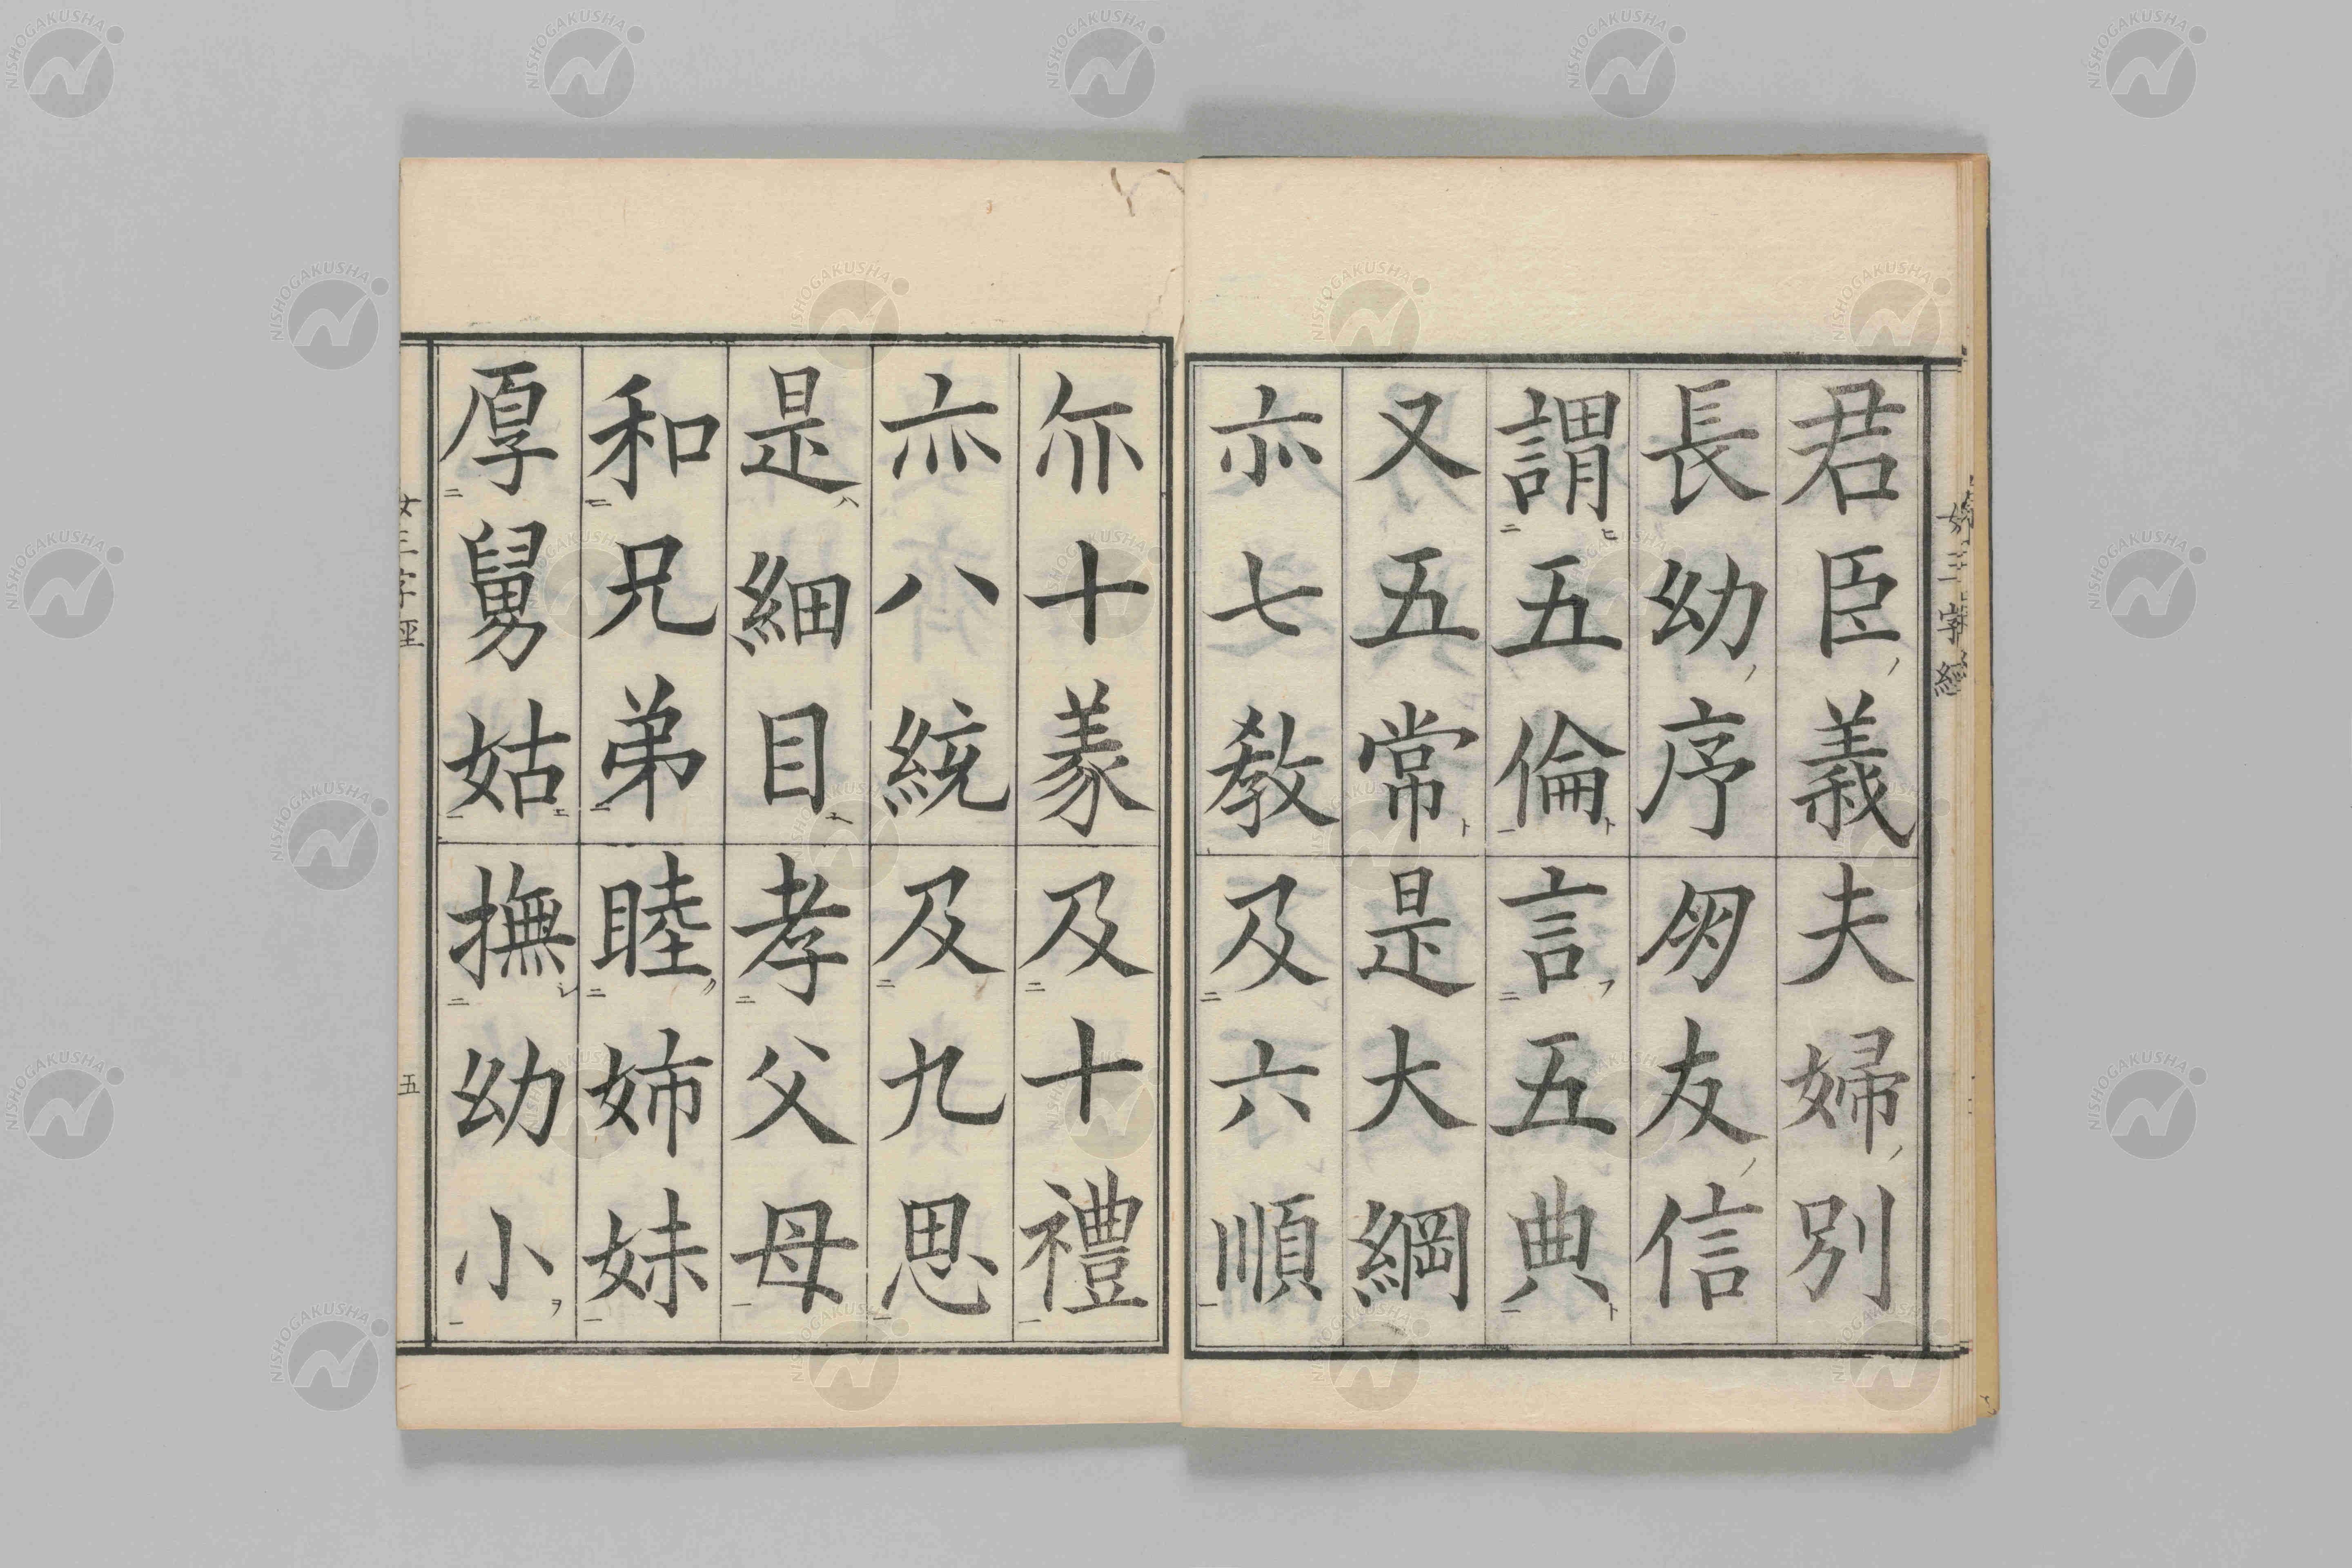 女三字經
君臣義夫婦別
長幼序朋友信
謂五倫言五典
又五常是大綱
亦七教及六順
亦十義及十禮
亦八統及九思
是細目孝父母
和兄弟睦姉妹
厚舅姑撫幼小
女三字經
五